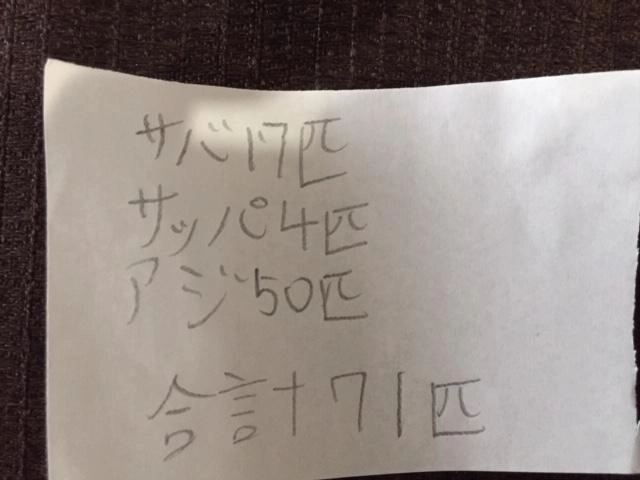 サバ17匹
サッパ4匹
アジ50匹
合計71匹